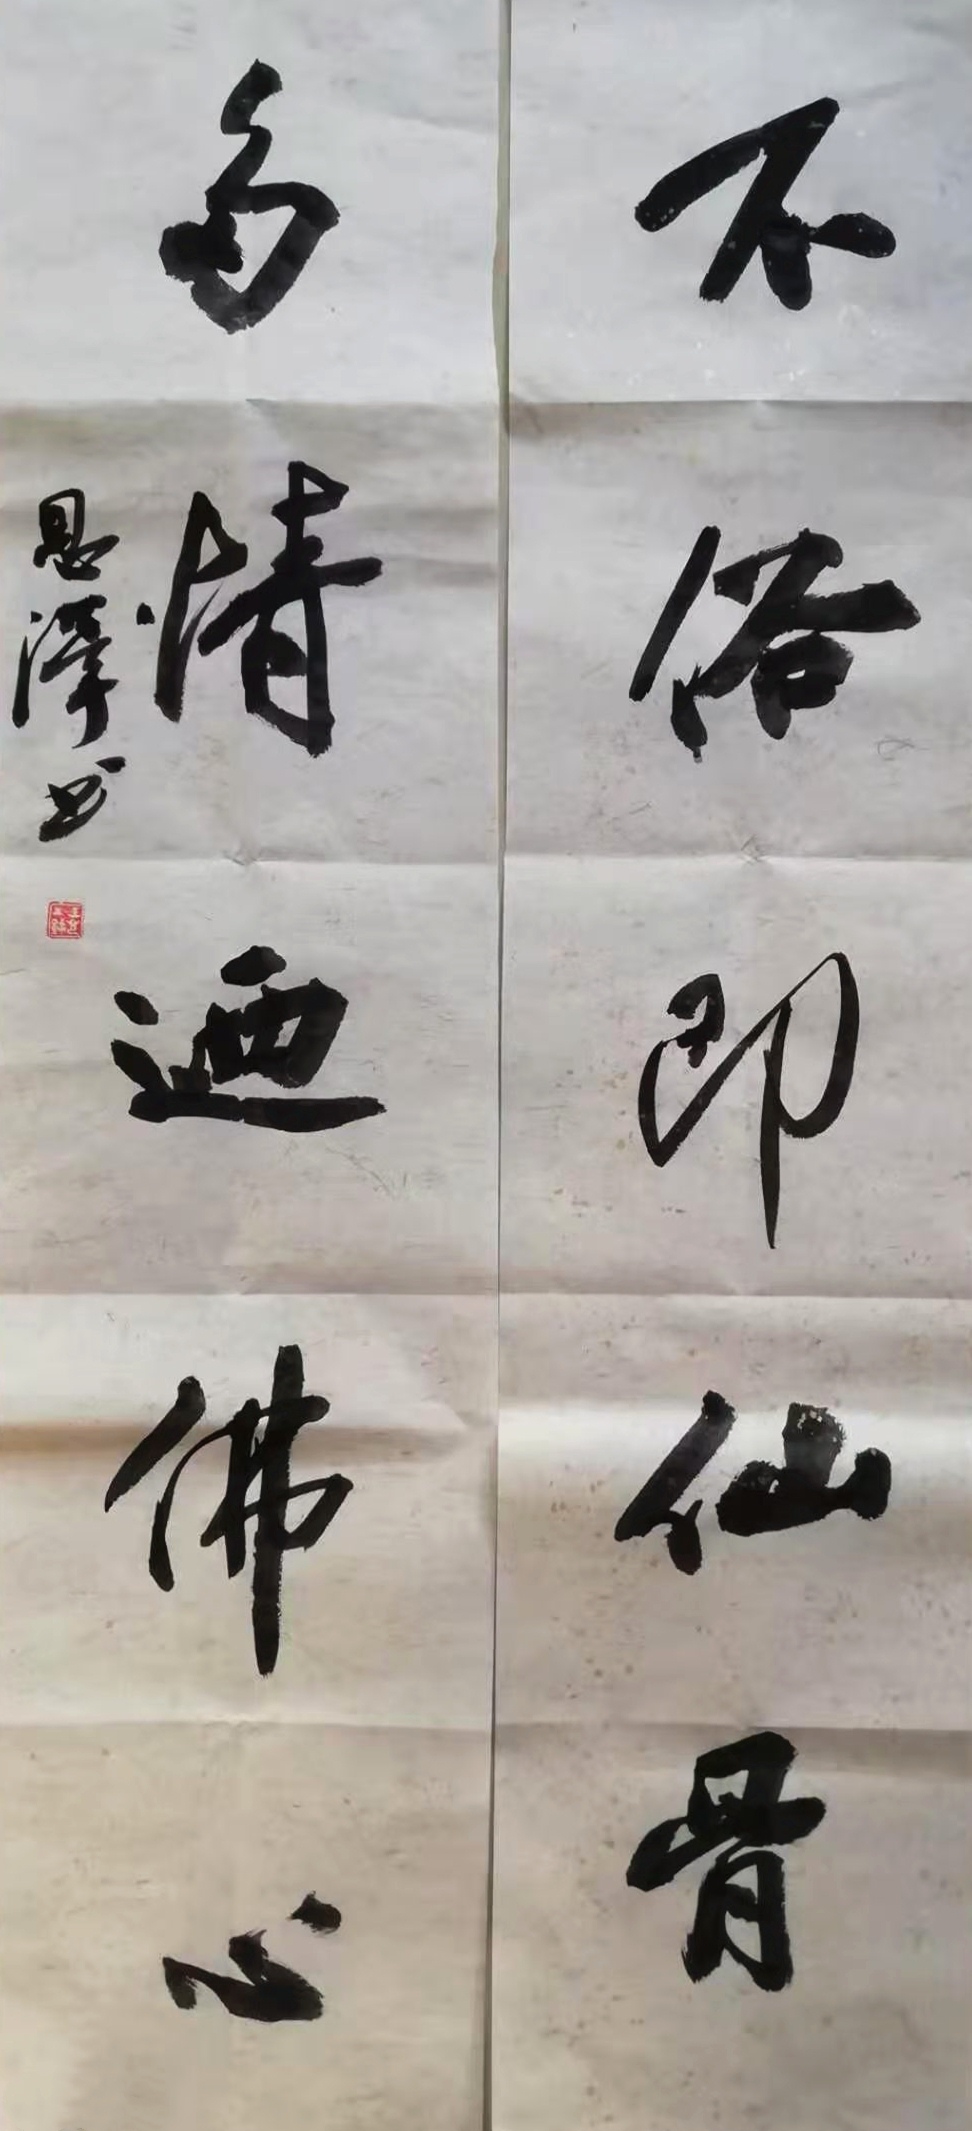 不俗即仙骨
多情迺佛心
恩澤书